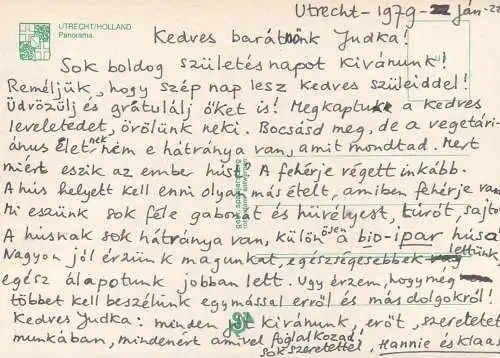 UTRECHT/HOLLAND
Panorama.
Utrecht-1979- ján-22
Kedves barátnőnk Judka!
Sok boldog születés napot kivánunk!
Reméljük, hogy szép nap lesz kedves szüleiddel!
Üdvözülj és grátulálj őket is! Megkaptuk a kedves
leveletedet, örölünk neki. Bocsásd meg, de a vegetári-
ánus életnek nem e hátránya van, amit mondtad. Mert
miért eszik az ember húst? A fehérje végett inkább.
A hús helyett kell enni olyan más ételt, amiben fehérje van.
Mi eszünk sok féle gabonát és hüvelyest, túrót, sajto
A húsnak sok hátránya van, különösen a bio-ipar húsa!
Nagyon jól érzünk magunkat, egészségesebbek lettünk,
egész álapotunk jobban lett. Ugy érzem, hogy még
többet kell beszélünk egymással erről és más dolgokról!
Kedves Judka: minden jót kivánunk, erőt, szeretetet
munkában, mindenért amivel foglalkozad,
sok szeretettel, Hannie és Klaa